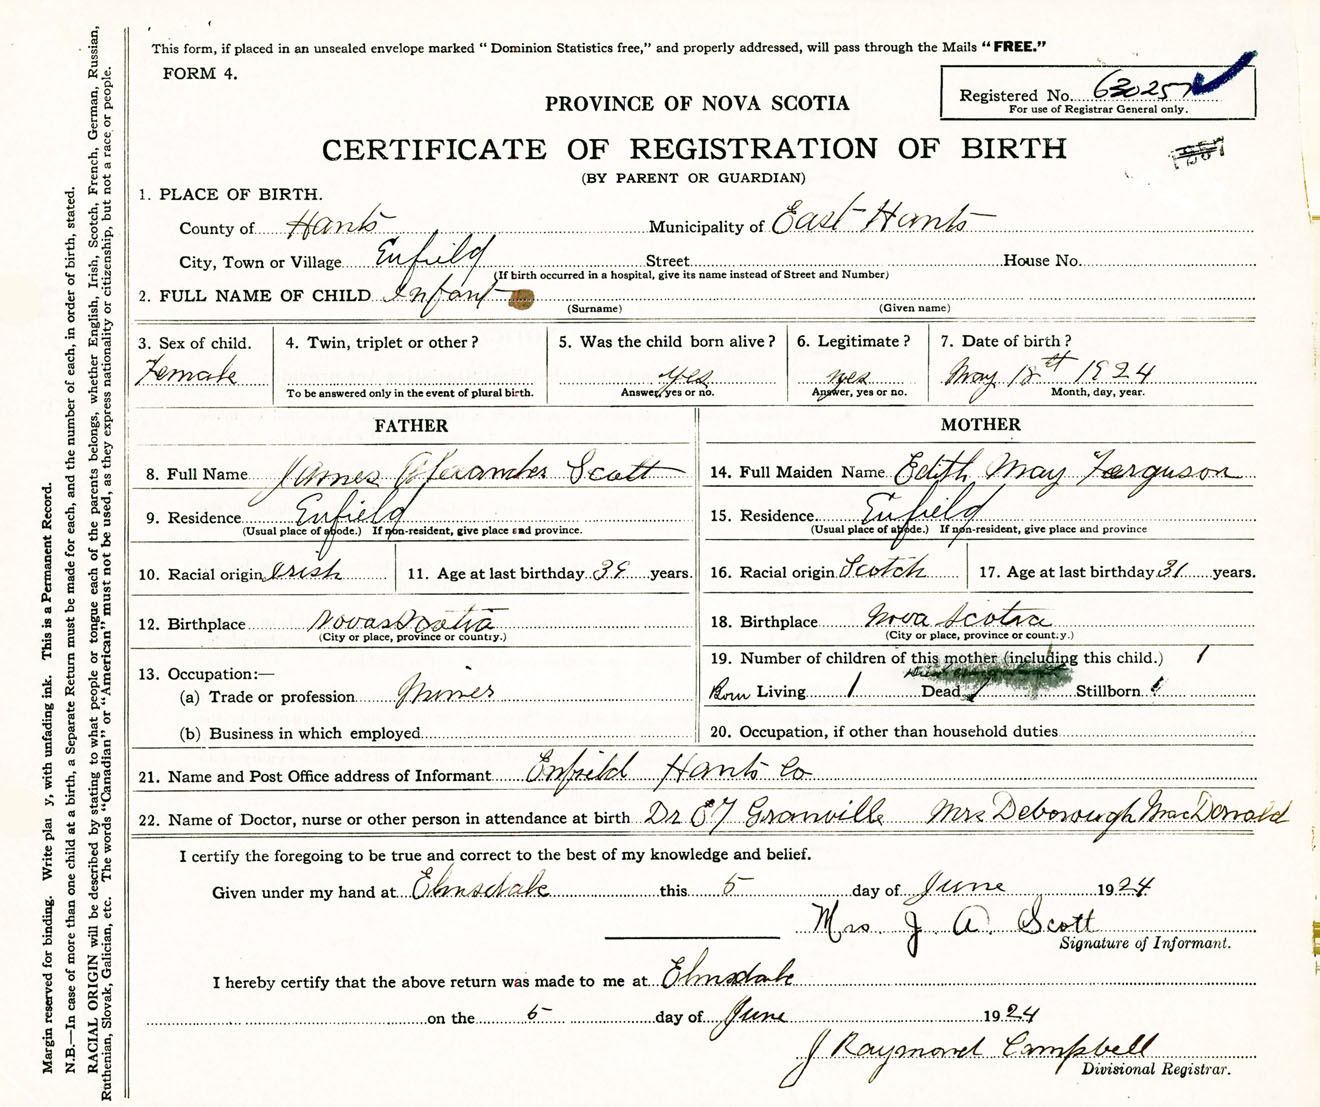 This form, if placed in an unsealed envelope marked “ Dominion Statistics free,” and properly addressed, will pass through the Mails “ FREE.”
FORM 4.
Registered No. 630257
For use of Registrar General only.
PROVINCE OF NOVA SCOTIA
CERTIFICATE OF REGISTRATION OF BIRTH
(BY PARENT OR GUARDIAN)
1. PLACE OF BIRTH.
County of Hants Municipality of East Hants
City, Town or Village Enfield Street House No.
(If birth occurred in a hospital, give its name instead of Street and Number)
2. FULL NAME OF CHILD Infant
(Surname) (Given name)
3. Sex of child. 4. Twin, triplet or other ? 5. Was the child born alive ? 6. Legitimate ? 7. Date of birth ?
Female yes yes May 18th 1924
To be answered only in the event of plural birth. Answer, yes or no. Answer, yes or no. Month, day, year.
FATHER MOTHER
8. Full Name James Alexander Scott
14. Full Maiden Name Edith May Ferguson
9. Residence Enfield
(Usual place of abode.) If non-resident, give place and province.
15. Residence Enfield
(Usual place of abode.) If non-resident, give place and province
10. Racial origin Irish 11. Age at last birthday years.
16. Racial origin Scotch 17. Age at last birthday 31 years.
12. Birthplace Nova Scotia
(City or place, province or country.)
18. Birthplace Nova Scotia
(City or place, province or country.)
13. Occupation:—
(a) Trade or profession Miner
(b) Business in which employed
19. Number of children of this mother (including this child.) 1
Born Living 1 Dead Stillborn
20. Occupation, if other than household duties
21. Name and Post Office address of Informant Enfield Hants Co
22. Name of Doctor, nurse or other person in attendance at birth Dr E Granville Mrs Deborough MacDonald
I certify the foregoing to be true and correct to the best of my knowledge and belief.
Given under my hand at Elmsdale this 5 day of June 1924
Mrs. J. A. Scott
Signature of Informant.
I hereby certify that the above return was made to me at Elmsdale
on the 5 day of June 1924
J Raymond Campbell
Divisional Registrar.
Margin reserved for binding. Write plai y, with unfading ink. This is a Permanent Record.
N.B.—In case of more than one child at a birth, a Separate Return must be made for each, and the number of each, in order of birth, stated.
RACIAL ORIGIN will be described by stating to what people or tongue each of the parents belongs, whether English, Irish, Scotch, French, German, Russian,
Ruthenian, Slovak, Galician, etc. The words “Canadian” or “American” must not be used, as they express nationality or citizenship, but not a race or people.